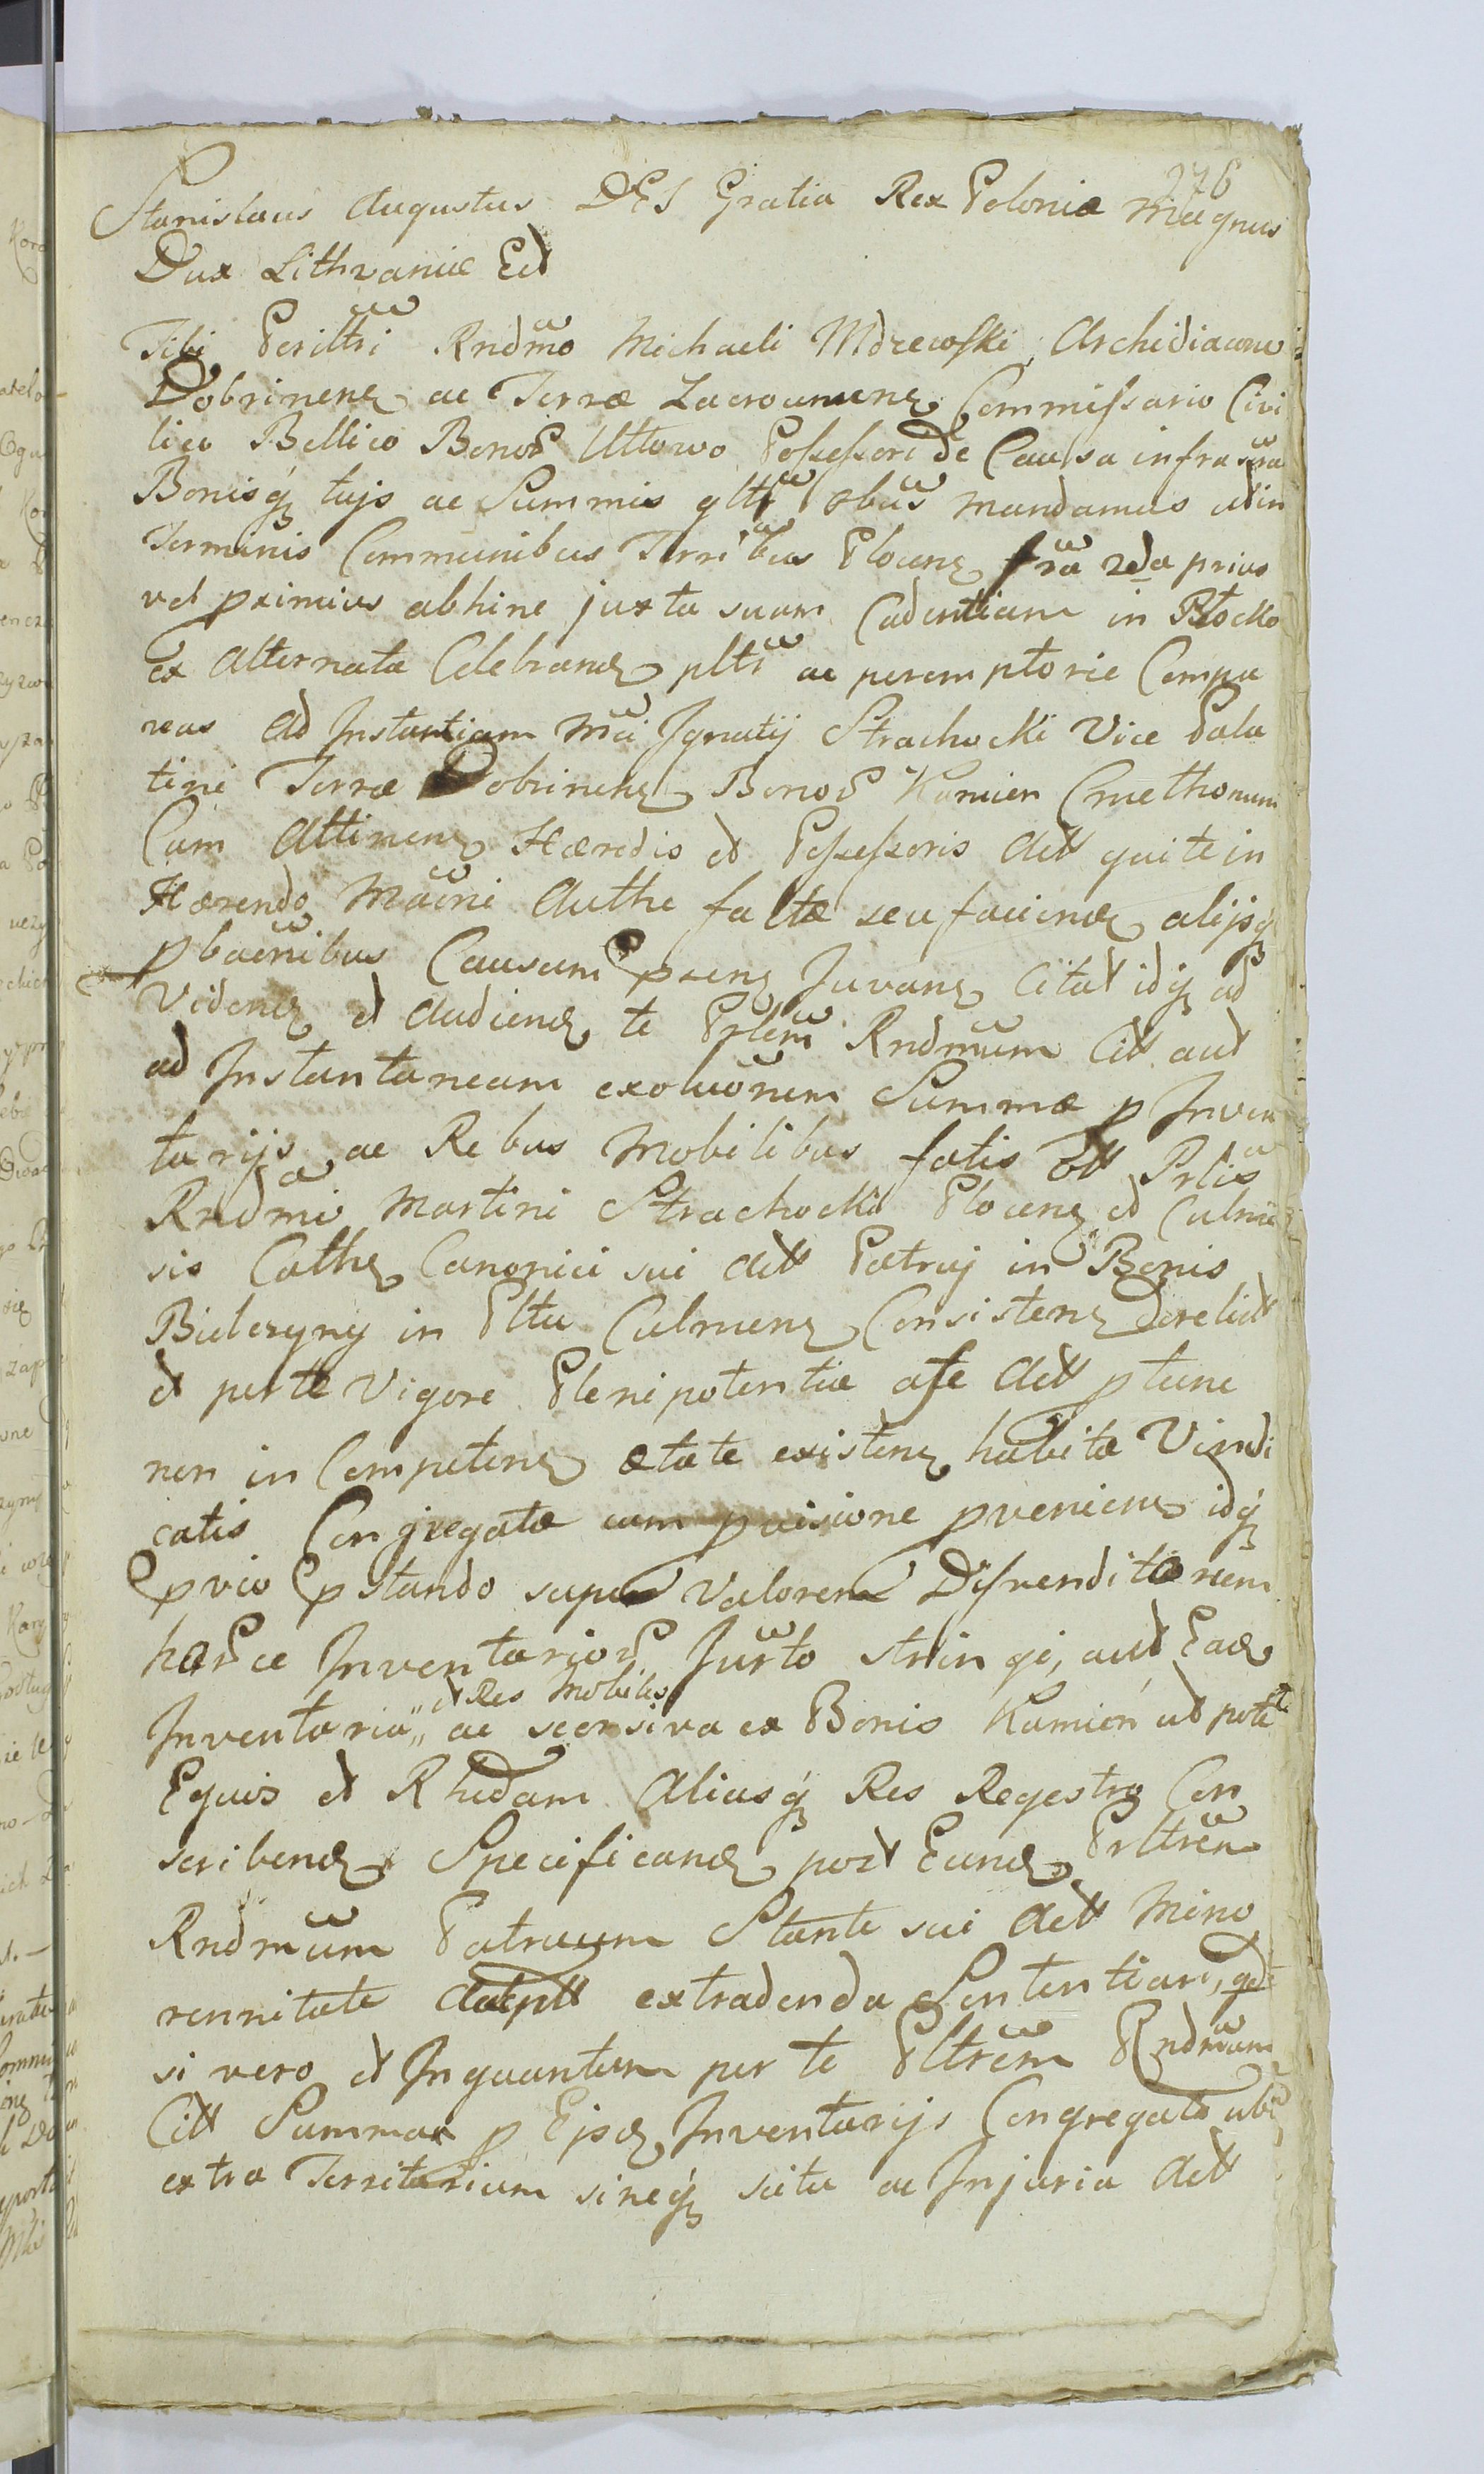 276
Stanislaus Augustus DEI Gratia Rex Poloniæ Magnus
Dux Lithvaniæ Ect
Tibi Perilltri Rndmo Michaeli Mdzewski Archidiacono
Dobrinenę ac Terræ Zacrocimenę Commissario Civi
lico Bellico Bonoȓ Uttowo Possessori de Causa infra scra
Bonisq́ tujs ac Summis gltr obus mandamus ut in
Terminis Communibus Terribus Plocenę fra 2da prius
vel proximius abhinc juxta suam Cadentiam in Płocko
ex Alternata Celebranđ pltr ac peremptorie Compa
reas Ad Instantiam Mci Ignatij Strachocki Vice Pala
tini Terræ Dobrinenę Bonoȓ Kamien Cmethonum
Cum Attinenę Hæredis et Possessoris Actt qui te in
Hærendo Macni Authe factæ seu faciendæ alijsq́
pbaenibus Causam prenę Juvanę Citat idq́ ad
Videnđ et Audienđ te Prlem Rndmum Citt aut
ad Instantaneam exoluonem Summæ p Inven
tarijs ac Rebus Mobilibus fatis ott Prlis
Rndmi Martini Strachocki Plocenę et Culmen
sis Cathę Canonici sui Actt Patruj in Bonis
Bielczyny in Pltu Culmenę Consistenę derelict
et per te Vigore Plenipotentiæ a se Actt p tunc
non in Competenę ætate existenę habitæ Vindi
catis Congregatæ cum pvisione pvenienę idq́
pvio pstando super Valorem Disvenditorum
harce Inventarioȓ Jurto stringi, aut Eađ
Inventaria,, et Res Mobiles ac seorsiva ex Bonis Kamień ut pote
Equis et Rhedam Aliasq́ Res Regestro Con
scribenđ Specificanđ post Eunđ Prltren
Rndmum Patruum Stante sui Actt Mino
rennitate extradenda Sententiari,
si vero et Inquantum per te Pltrem Rndmum
Citt Summar p Ejsđ Inventarijs Congregata ubi
extra Territorium sineq́ scitu ac Injuria Actt